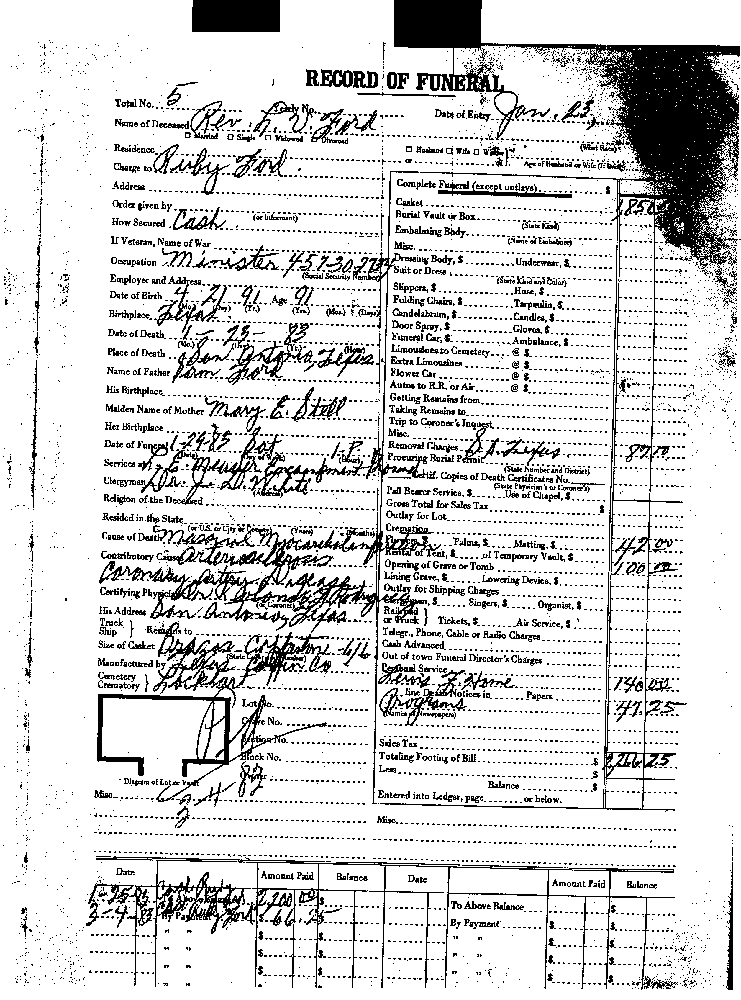 RECORD OF FUNERAL
Total No. 5 Yearly No.
Date of Entry Jan. 23,
Name of Deceased Rev. L. V. Ford
Married Single Widowed Divorced
Husband Wife
Residence
Age of Husband or Wife
Charge to Ruby Ford
Address
Order given by
(or Informant)
How Secured Cash
If Veteran, Name of War
Occupation Minister 457-30-
(Social Security Number)
Employer and Address
Date of Birth 4 21 91 Age 91
(Mo.) (Day) (Yr.) (Yrs.) (Mos.) (Days)
Birthplace Texas
Date of Death 1-23-83
Place of Death San Antonio, Texas
Name of Father Ford
His Birthplace
Maiden Name of Mother Mary E. Still
Her Birthplace
Date of Funeral 1-29-83 Sat 1 P.
Services at Encampment Ground
Clergyman Dr. J. D. White
Religion of the Deceased
Resided in the State
(or U.S. or City or County) (Years) (Months)
Cause of Death
Contributory Cause Arteriosclerosis
Coronary Artery Disease
Certifying Physician
(or Coroner)
His Address San Antonio, Texas
Truck Ship } Remains to
Size of Casket 6/6
Manufactured by Texas Coffin Co
Cemetery Crematory } Lockhart
Lot No.
Grave No.
Section No.
Block No.
Diagram of Lot or Vault
Misc.
Complete Funeral (except outlays) $
Casket 1,850
Burial Vault or Box
(State Kind)
Embalming Body
(Name of Embalmer)
Misc.
Dressing Body, $ Underwear, $
Suit or Dress
(State Kind and Color)
Slippers, $ Hose, $
Folding Chairs, $ Tarpaulin, $
Candelabrum, $ Candles, $
Door Spray, $ Gloves, $
Funeral Car, $ Ambulance, $
Limousines to Cemetery @ $
Extra Limousines @ $
Flower Car @ $
Autos to R.R. or Air @ $
Getting Remains from
Taking Remains to
Trip to Coroner's Inquest
Misc.
Removal Charges S.A. Texas 87
Procuring Burial Permit
(State Number and District)
Certif. Copies of Death Certificates No.
(State Physician's or Coroner's)
Pall Bearer Service, $ Use of Chapel, $
Gross Total for Sales Tax $
Outlay for Lot
Cremation
Palms, $ Matting, $ 42 00
Rental of Tent, $ of Temporary Vault, $
Opening of Grave or Tomb 100 00
Lining Grave, $ Lowering Device, $
Outlay for Shipping Charges
Singers, $ Organist, $
Railroad or Truck } Tickets, $ Air Service, $
Telegr., Phone, Cable or Radio Charges
Cash Advanced
Out of town Funeral Director's Charges
Personal Service
Lewis F. Home 140 00
line Death Notices in Papers
Programs 47.25
(Names of Newspapers)
Sales Tax
Totaling Footing of Bill $ 2,266.25
Less $
Balance $
Entered into Ledger, page or below.
Misc.
Date Amount Paid Balance Date Amount Paid Balance
1-25-83 Ruby 2,200 00 $ To Above Balance $
3-4-83 By Payment Ruby Ford 66.25 By Payment $ $